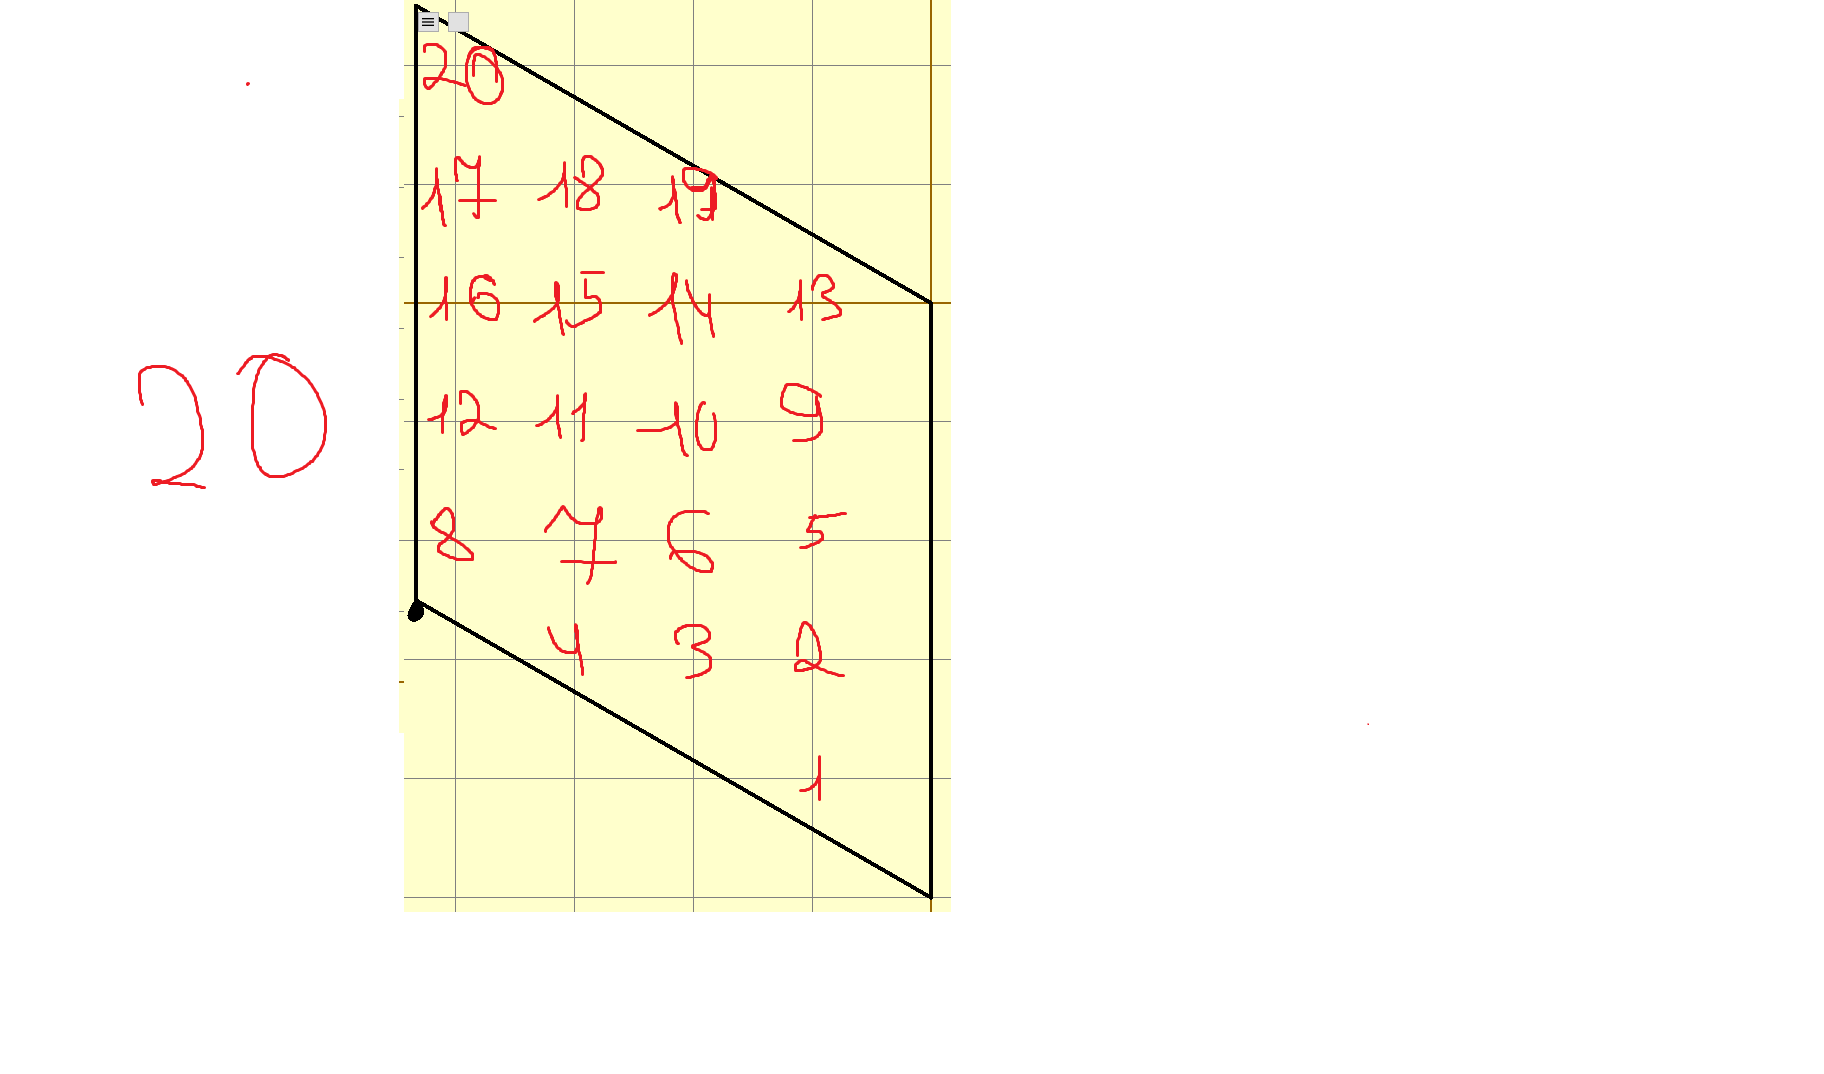 20
17 18 19
16 15 14 13
12 11 10 9
20
8 7 6 5
4 3 2
1